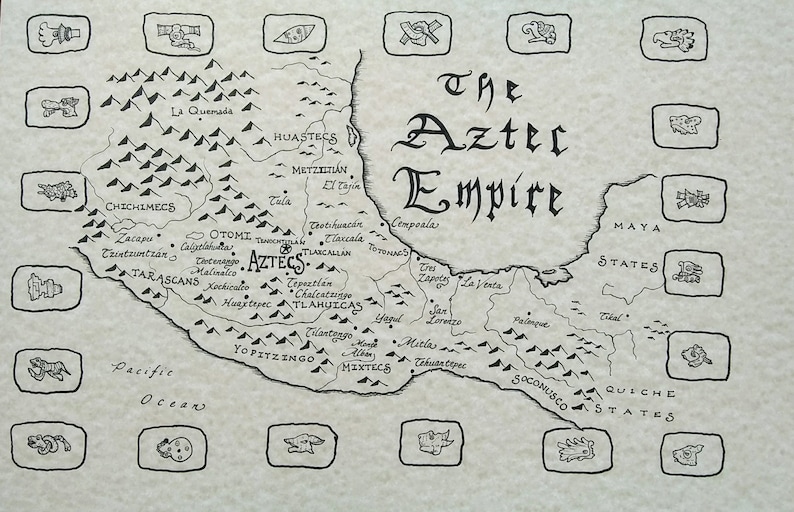 The
Aztec
Empire
La Quemada
HUASTECS
METZTITLÁN
El Tajín
CHICHIMECS
Tula
Teotihuacán
Cempoala
MAYA
STATES
Zacapu
OTOMI
TENOCHTITLÁN
Tlaxcala
Calixtlahuaca
TOTONACS
Tzintzuntzán
Teotenango
AZTECS
TLAXCALLAN
Malinalco
Tres
Zapotes
TARASCANS
Xochicalco
Tepoztlán
Chalcatzingo
La Venta
Huaxtepec
TLAHUICAS
San
Lorenzo
Palenque
Tikal
Yagul
Tilantongo
Monte
Albán
Mitla
YOPITZINGO
MIXTECS
Tehuantepec
Pacific
Ocean
SOCONUSCO
QUICHE
STATES